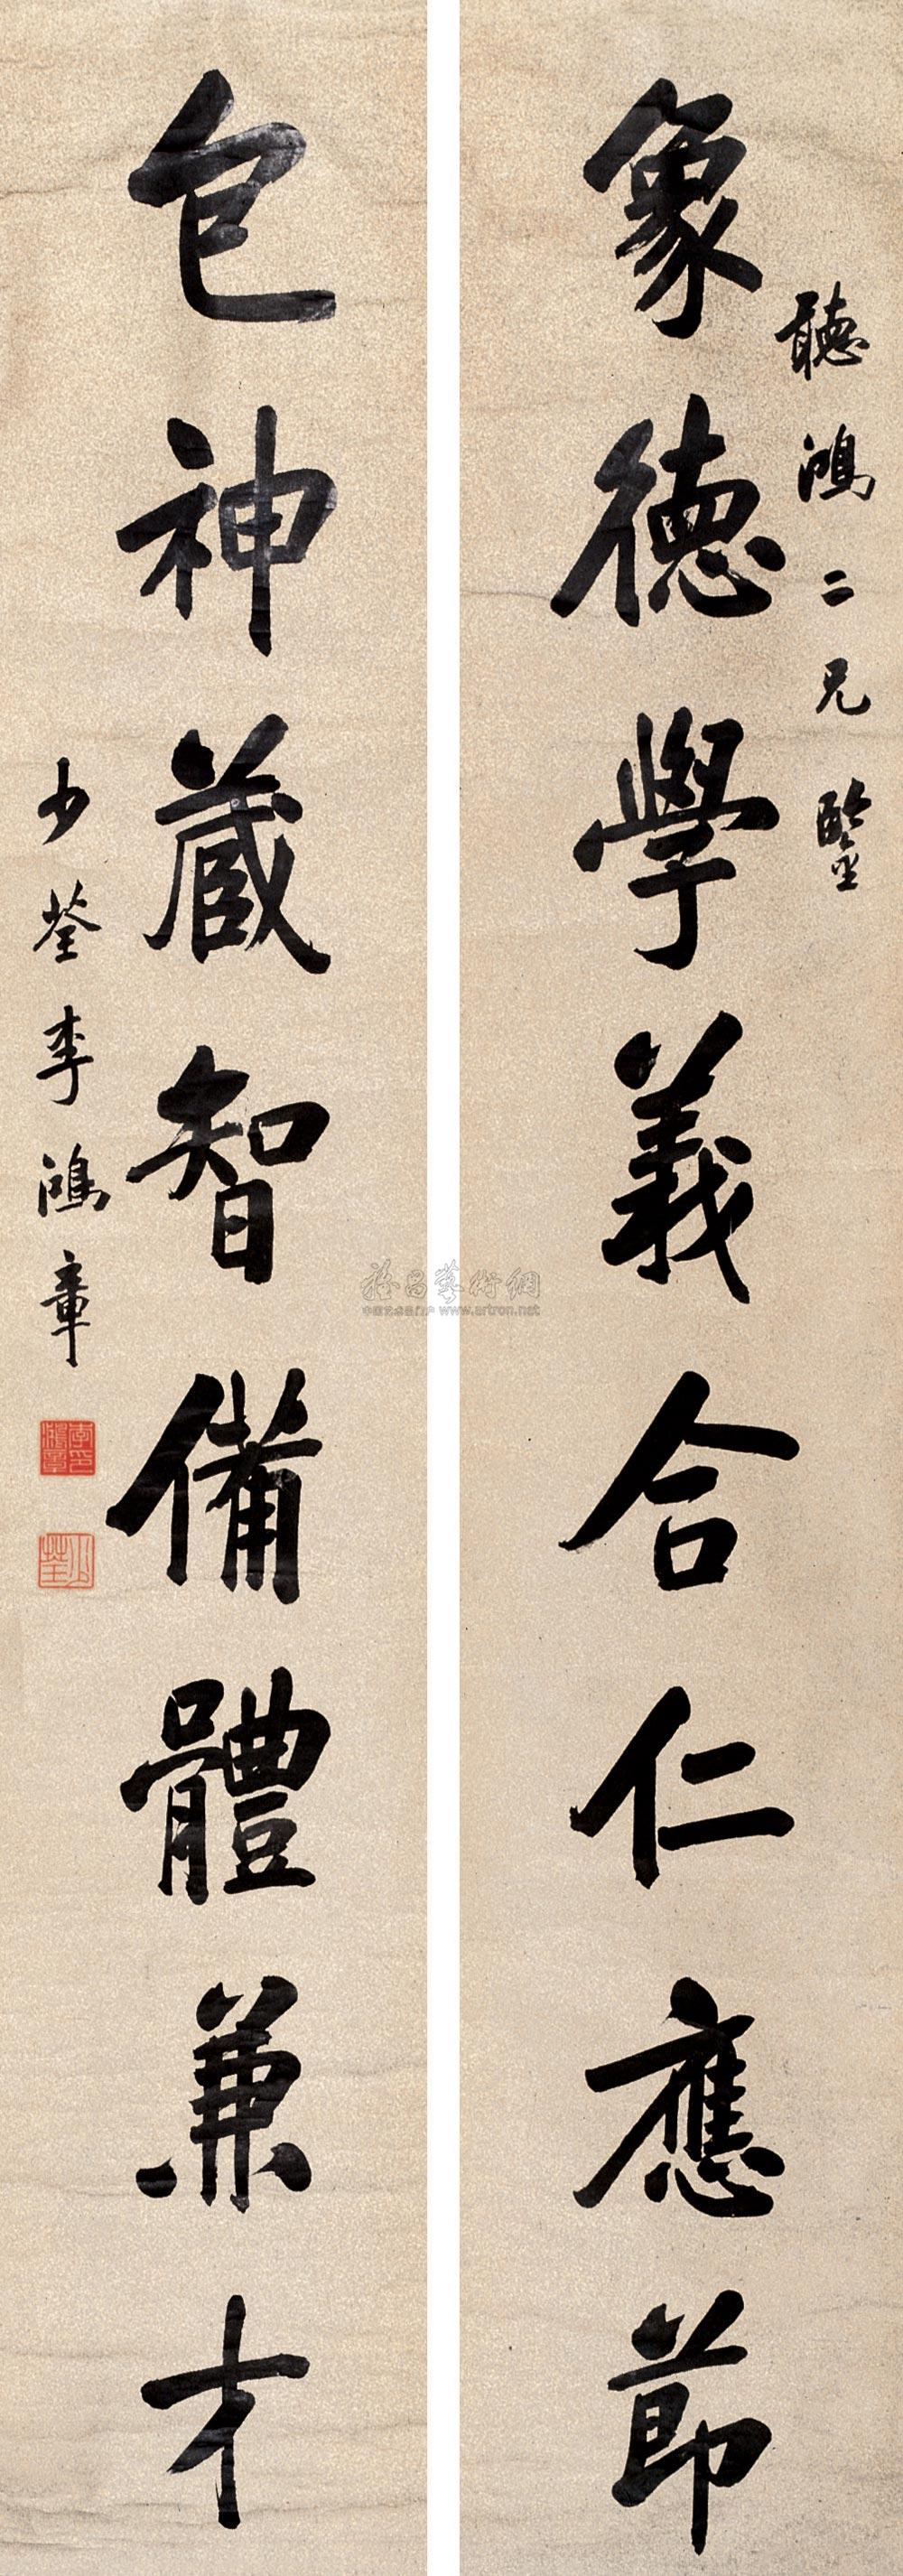 聽鴻二兄鑒
象德學義合仁應節
包神藏智備體兼才
少荃李鴻章
李鴻章印
少荃
中国艺术品门户 www.artron.net